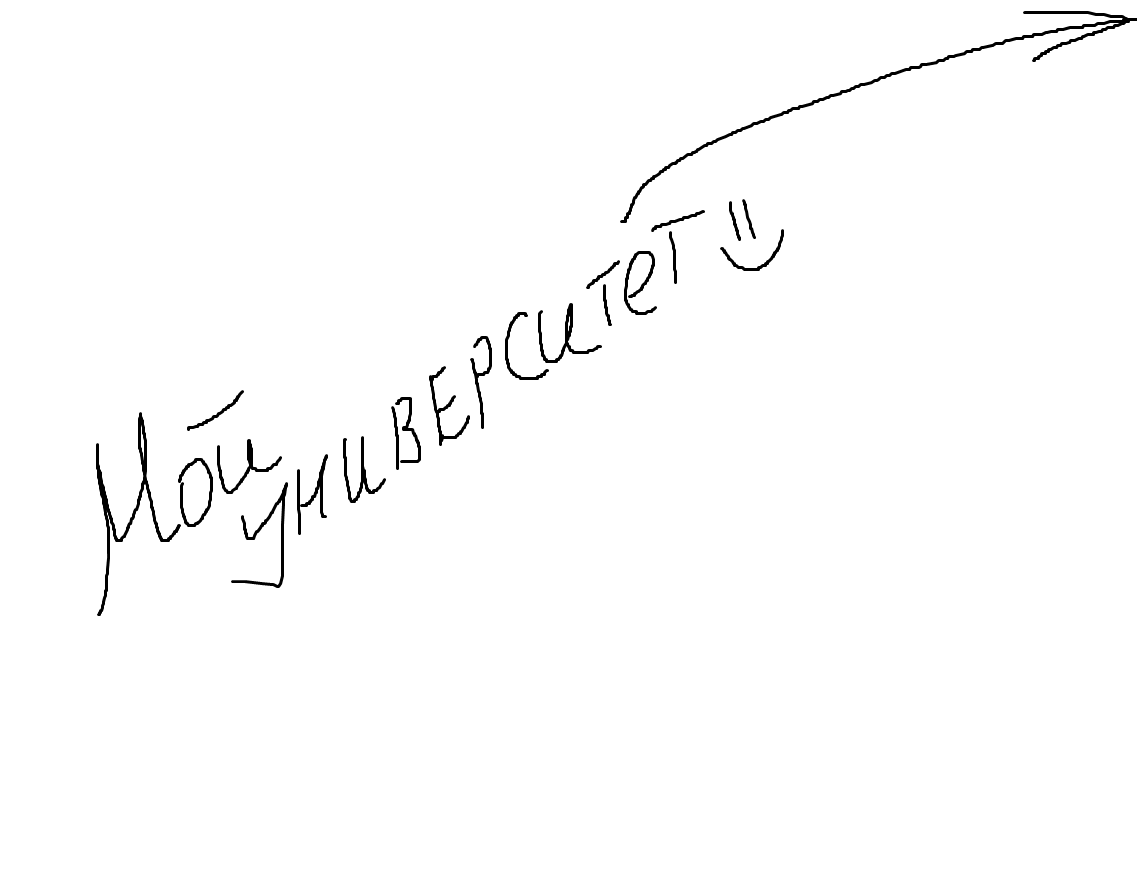 Мой
университет